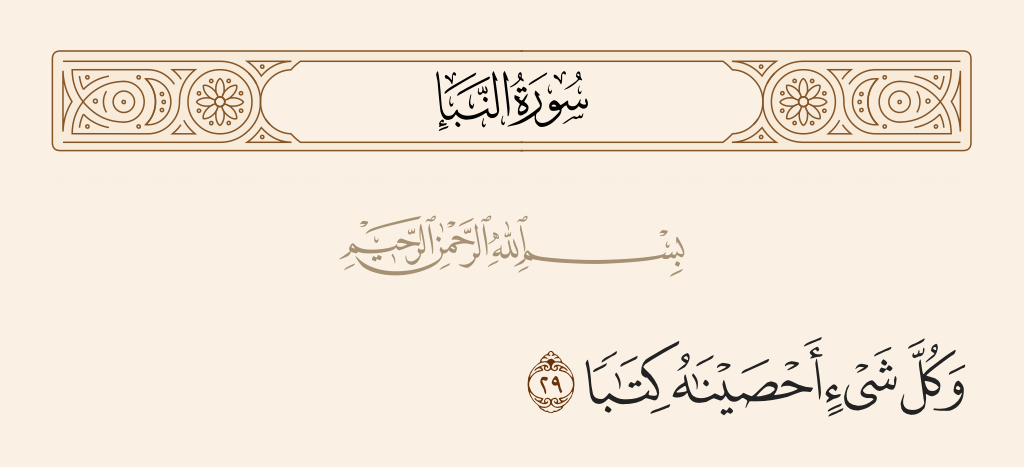 سُورَةُ النَّبَإِ
بِسْمِ ٱللَّهِ ٱلرَّحْمَٰنِ ٱلرَّحِيمِ
وَكُلَّ شَىْءٍ أَحْصَيْنَٰهُ كِتَٰبًا ٢٩